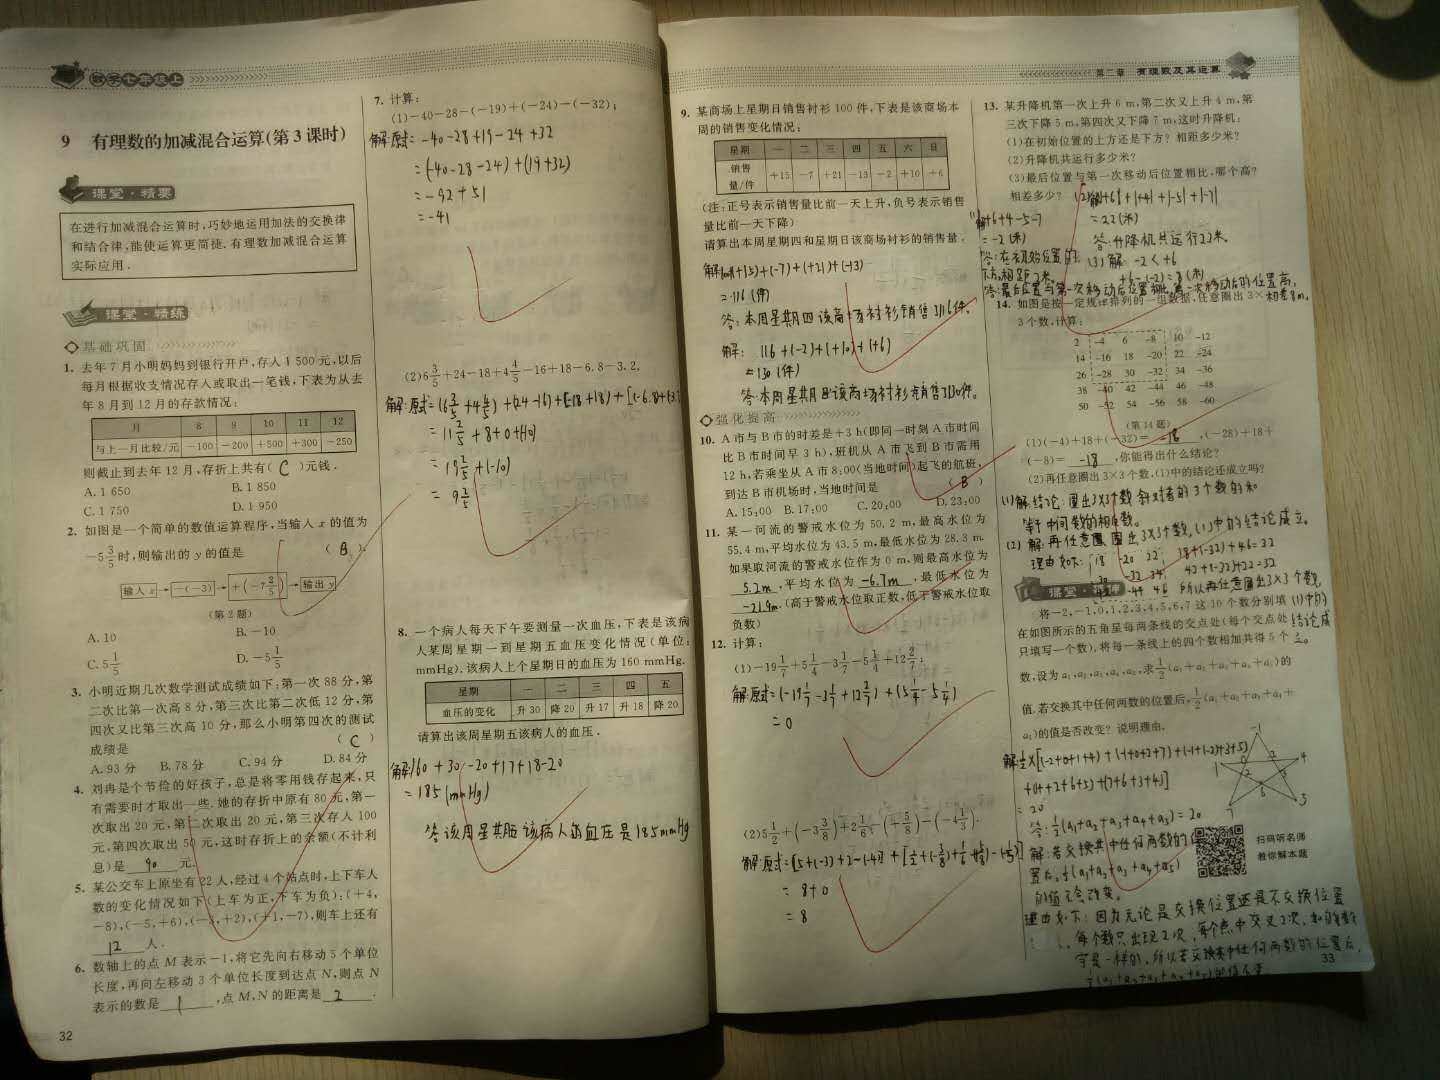 数学七年级上
9 有理数的加减混合运算(第3课时)
课堂·精要
在进行加减混合运算时,巧妙地运用加法的交换律
和结合律,能使运算更简捷.有理数加减混合运算
实际应用.
课堂·精练
基础巩固
1. 去年7月小明妈妈到银行开户,存入1 500元,以后
每月根据收支情况存入或取出一笔钱,下表为从去
年8月到12月的存款情况:
月 8 9 10 11 12
与上一月比较/元 -100 -200 +500 +300 -250
则截止到去年12月,存折上共有( C )元钱.
A. 1 650 B. 1 850
C. 1 750 D. 1 950
2. 如图是一个简单的数值运算程序,当输入x的值为
-5 3/5时,则输出的y的值是 ( B ).
输入x → -(-3) → +(-7 2/5) → 输出y
(第2题)
A. 10 B. -10
C. 5 1/5 D. -5 1/5
3. 小明近期几次数学测试成绩如下:第一次88分,第
二次比第一次高8分,第三次比第二次低12分,第
四次又比第三次高10分,那么小明第四次的测试
成绩是 ( C )
A. 93分 B. 78分 C. 94分 D. 84分
4. 刘冉是个节俭的好孩子,总是将零用钱存起来,只
有需要时才取出一些.她的存折中原有80元,第一
次取出20元,第二次取出20元,第三次存入100
元,第四次取出50元,这时存折上的余额(不计利
息)是 90 元.
5. 某公交车上原坐有22人,经过4个站点时,上下车人
数的变化情况如下(上车为正,下车为负):(+4,
-8),(-5,+6),(-3,+2),(+1,-7),则车上还有
12 人.
6. 数轴上的点M表示-1,将它先向右移动5个单位
长度,再向左移动3个单位长度到达点N,则点N
表示的数是 1 ,点M,N的距离是 2 .
32
7. 计算:
(1)-40-28-(-19)+(-24)-(-32);
解:原式=-40-28+19-24+32
=(-40-28-24)+(19+32)
=-92+51
=-41
(2)6 3/5+24-18+4 4/5-16+18-6.8-3.2.
解:原式=(6 3/5+4 4/5)+(24-16)+[-18+18)+[(-6.8)+(-3.2
=11 2/5+8+0+(-10)
=19 2/5+(-10)
=9 2/5
8. 一个病人每天下午要测量一次血压,下表是该病
人某周星期一到星期五血压变化情况(单位:
mmHg),该病人上个星期日的血压为160 mmHg.
星期 一 二 三 四 五
血压的变化 升30 降20 升17 升18 降20
请算出该周星期五该病人的血压.
解:160+30-20+17+18-20
=185(mmHg)
答:该周星期五该病人的血压是185mmHg
第二章 有理数及其运算
9. 某商场上星期日销售衬衫100件,下表是该商场本
周的销售变化情况:
星期 一 二 三 四 五 六 日
销售量/件 +15 -7 +21 -13 -2 +10 +6
(注:正号表示销售量比前一天上升,负号表示销售
量比前一天下降)
请算出本周星期四和星期日该商场衬衫的销售量.
解:100+(+15)+(-7)+(+21)+(-13)
=116(件)
答:本周星期四该商场衬衫销售116件.
解:116+(-2)+(+10)+(+6)
=130(件)
答:本周星期日该商场衬衫销售130件.
强化提高
10. A市与B市的时差是+3 h(即同一时刻A市时间
比B市时间早3 h),班机从A市飞到B市需用
12 h,若乘坐从A市8:00(当地时间)起飞的航班,
到达B市机场时,当地时间是 ( B )
A. 15:00 B. 17:00 C. 20:00 D. 23:00
11. 某一河流的警戒水位为50.2 m,最高水位为
55.4 m,平均水位为43.5 m,最低水位为28.3 m.
如果取河流的警戒水位作为0 m,则最高水位为
5.2m ,平均水位为 -6.7m ,最低水位为
-21.9m .(高于警戒水位取正数,低于警戒水位取
负数)
12. 计算:
(1)-19 1/7+5 1/4-3 1/7-5 1/4+12 2/7;
解:原式=(-19 1/7-3 1/7+12 2/7)+(5 1/4-5 1/4)
=0
(2)5 1/2+(-3 3/8)+2 1/6-(+5/8)-(-4 1/3).
=8+0
=8
13. 某升降机第一次上升6 m,第二次又上升4 m,第
三次下降5 m,第四次又下降7 m,这时升降机:
(1)在初始位置的上方还是下方?相距多少米?
(2)升降机共运行多少米?
(3)最后位置与第一次移动后位置相比,哪个高?
相差多少?
(1)解:+6+4-5-7
=-2(米)
答:在初始位置的
下方,相距2米.
(2)解:|+6|+|+4|+|-5|+|-7|
=22(米)
答:升降机共运行22米.
(3)解:-2<+6
+6-(-2)=8(米)
答:最后位置与第一次移动后位置相比,第一次移动后的位置高,
相差8m.
14. 如图是按一定规律排列的一组数据,任意圈出3×
3个数,计算:
2 -4 6 -8 10 -12
14 -16 18 -20 22 -24
26 -28 30 -32 34 -36
38 -40 42 -44 46 -48
50 -52 54 -56 58 -60
(第14题)
(1)(-4)+18+(-32)= -18 ,(-28)+18+
(-8)= -18 ,你能得出什么结论?
(2)再任意圈出3×3个数,(1)中的结论还成立吗?
(1)解:结论:圈出3×3个数,斜对着的3个数的和
等于中间数的相反数.
(2)解:再任意圈出3×3个数,(1)中的结论成立.
理由如下: 18 -20 22 18+(-32)+46=32
30 -32 34 42+(-32)+22=32
42 -44 46 所以再任意圈出3×3个数,
(1)中的
结论成
立.
课堂·精博
将-2,-1,0,1,2,3,4,5,6,7这10个数分别填
在如图所示的五角星每两条线的交点处(每个交点处
只填写一个数),将每一条线上的四个数相加共得5个
数,设为a₁,a₂,a₃,a₄,a₅,求1/2(a₁+a₂+a₃+a₄+a₅)的
值.若交换其中任何两数的位置后,1/2(a₁+a₂+a₃+a₄+
a₅)的值是否改变?说明理由.
=20
答:1/2(a₁+a₂+a₃+a₄+a₅)=20
解:若交换其中任何两数的位
置后,1/2(a₁+a₂+a₃+a₄+a₅)
的值不会改变.
理由如下:因为无论是交换位置还是不交换位置
每个数只出现2次,每个点中交叉2次,
是一样的,所以若交换其中任何两数的位置后,
扫码听名师
教你解本题
33